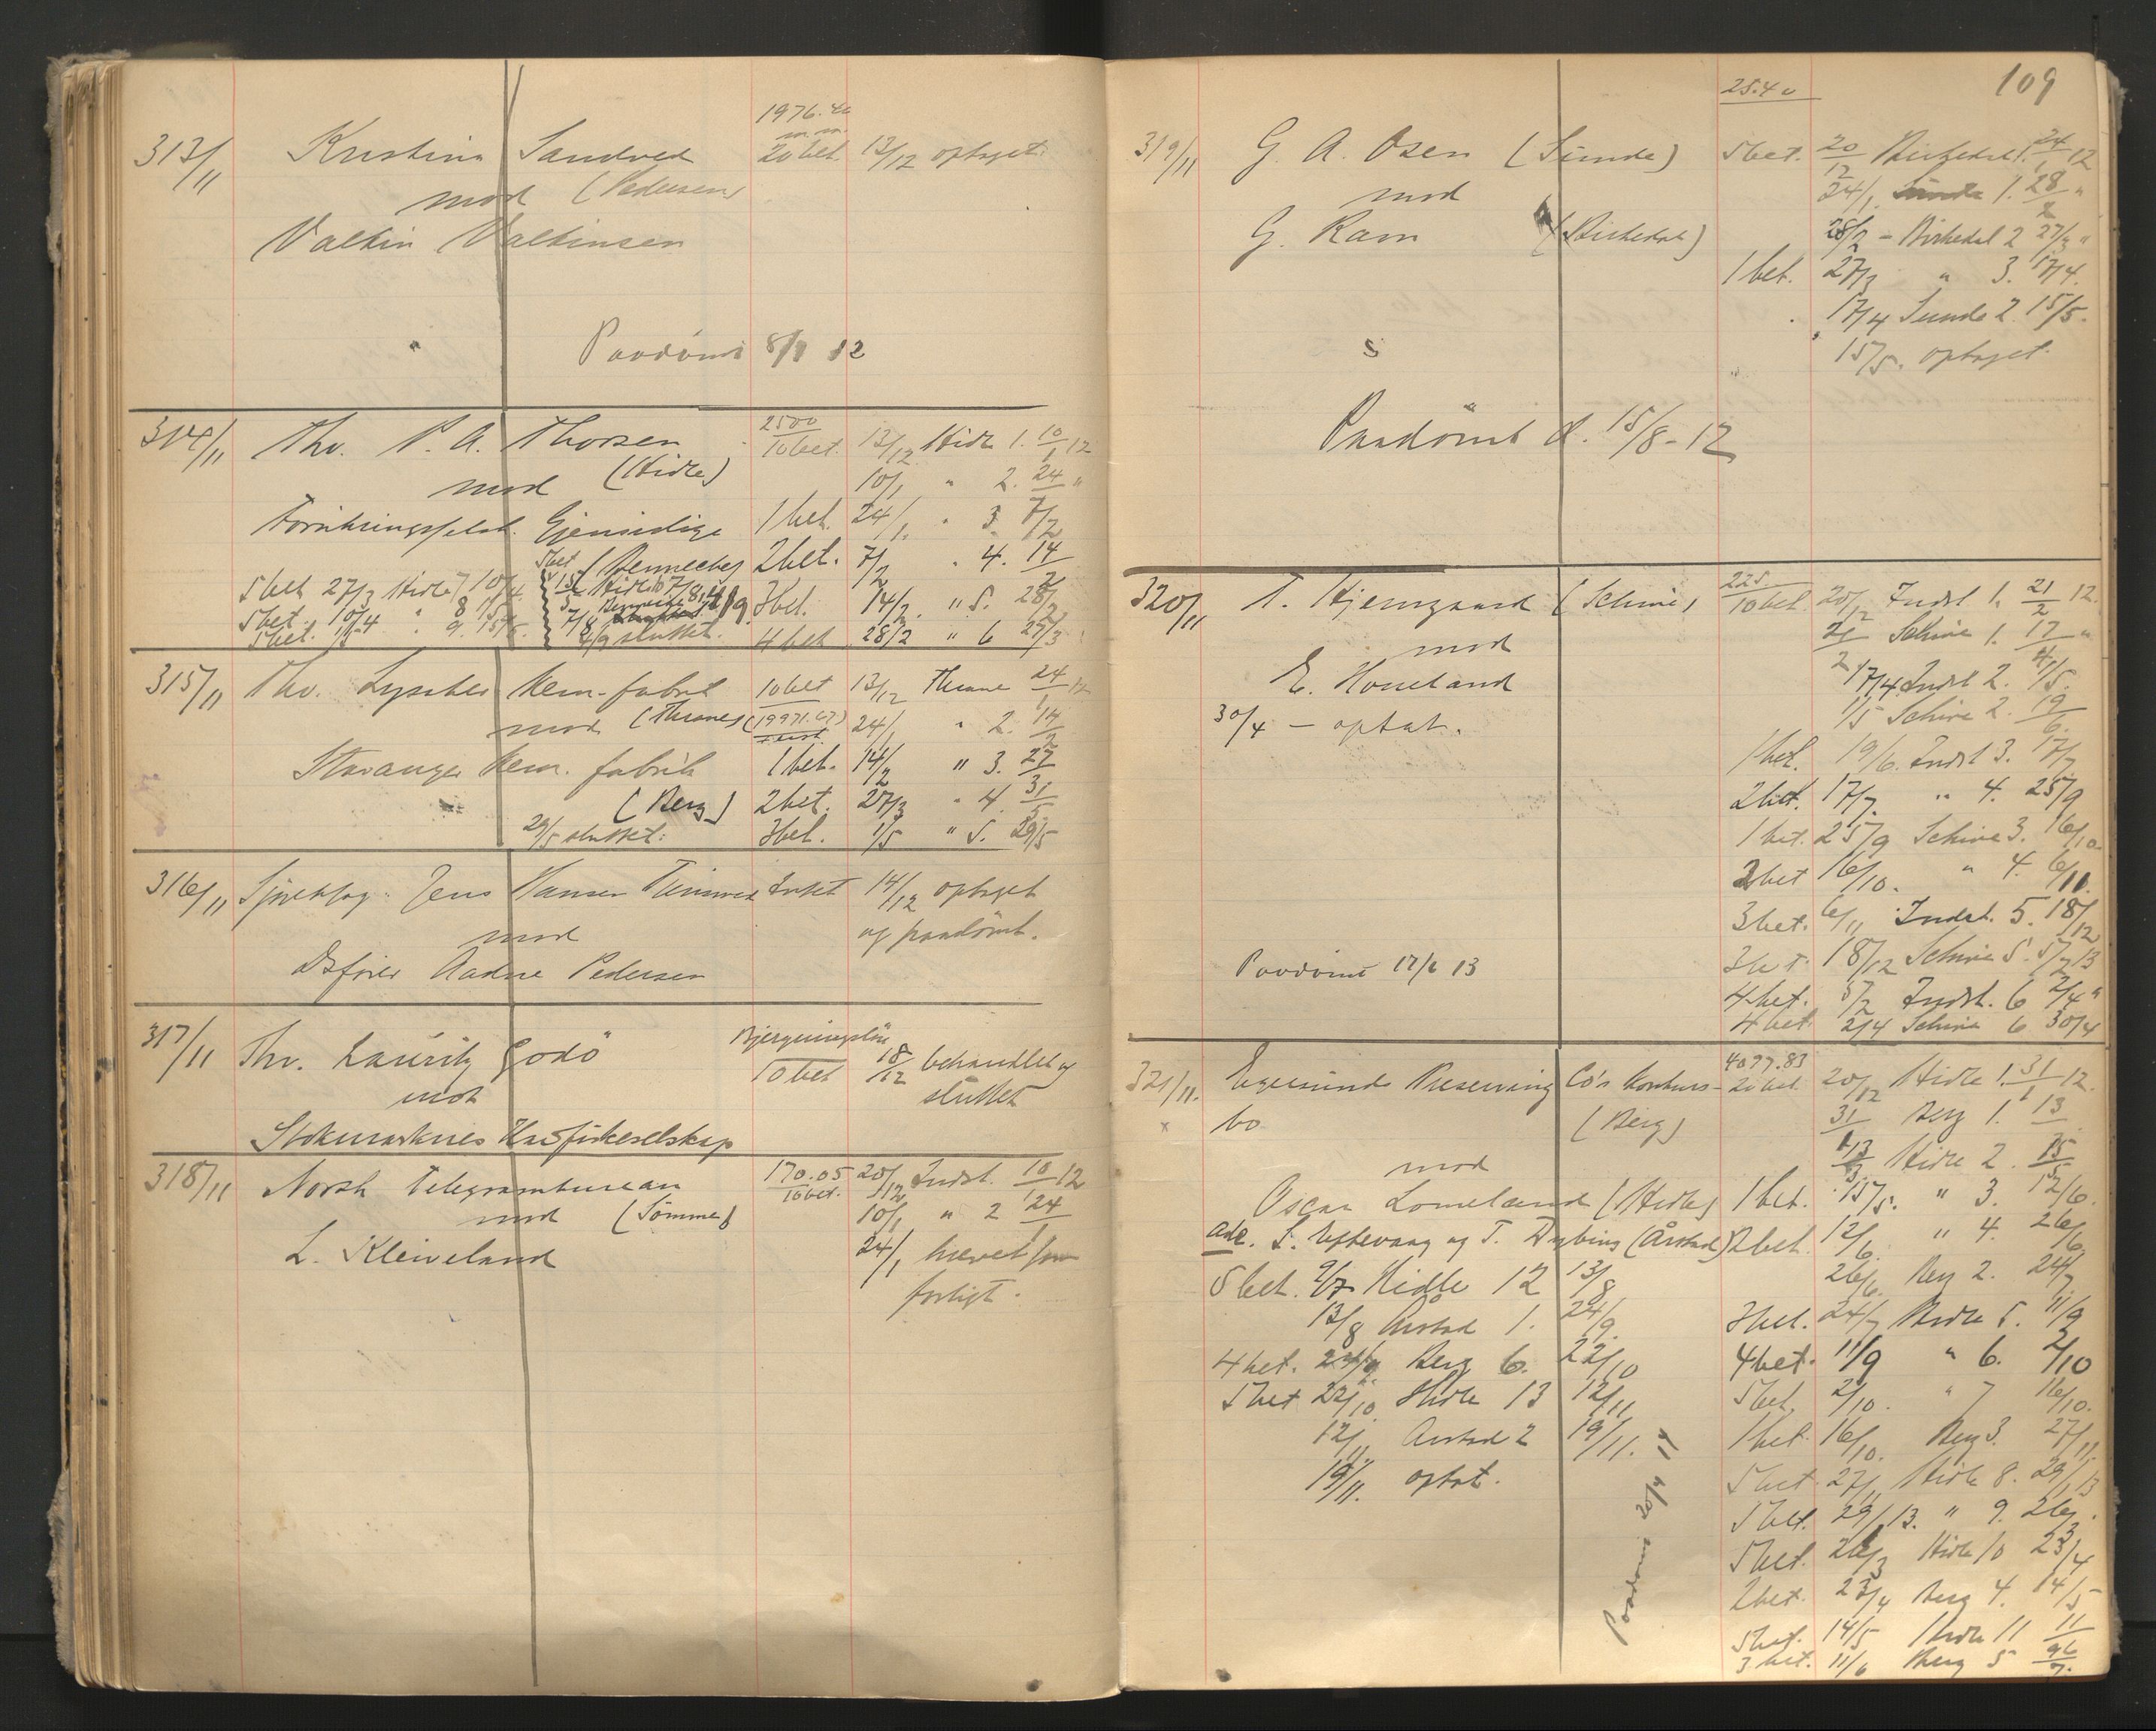 1976.40
m.m.
313/11 Kristine Sandved 20 bet. 13/12 optaget.
mod (Pedersen)
Valkin Valkinsen
Paadömt 8/1 12
2500
314/11 Thv. P. A. Thorsen 10 bet. 13/12 Hidle 1. 10/1 12
mod (Hidle) 10/1 " 2. 24 "
Forsikringsselsk. Gjensidige 1 bet. 24/1. " 3. 7/2
5bet (Bennecheg 2 bet. 7/2 " 4. 14/2
5 bet 27/3 Hidle 7 10/4. 3 bet. 14/2. " 5. 28/2
5 bet. 10/4 " 8 1/5
5 bet. 1/5 " 9. 15/5. 4/9 sluttet. 4 bet 28/2 " 6 27/3
315/11 Thv. Lysaker Kem. fabrik 10 bet 13/12 Thrane 24/1 12
mod (Thranes) (19971.67) 24/1 " 2. 14/2
Stavanger Kem. fabrik 1 bet. 14/2 " 3. 27/3
(Berg) 2 bet. 27/3 " 4. 1/5
29/5 sluttet. 3 bet. 1/5 " 5. 29/5
316/11 Sjörettssag: Jens Hansen 14/12 optaget
mod og paadömt.
Aadne Pedersen
317/11 Thv. Lauritz Godö Bjergningslön
10 bet 18/12 behandlet og
mod sluttet
Stokmarknes Havfiskeselskap
318/11 Norsk Telegrambureau 170.05 20/12 Indst. 10/1 12
10 bet.
mod (Sömme) 10/1 " 2 24
L. Kleiveland 24/1 hævet som
forligt.
109
25.40
319/11 G. A. Osen (Sunde) 5 bet. 20/12 Birkedal 1. 24/1 12
mod 24/1. Sunde 1. 28/2 "
G. Ravn (Birkedal) 28/2 - Birkedal 2 27/3 "
1 bet. 27/3 " 3. 17/4.
17/4 Sunde 2. 15/5.
15/5. optaget.
Paadömt d. 15/8-12
225
320/11 T. Hjemgaard (Schiøe) 10 bet. 20/12 Indst 1. 21/2 12.
mod 21/2 Schiøe 1. 17/4 "
E. Houeland 17/4 Indst 2. 1/5.
30/4 - optat. 1/5 Schiøe 2. 19/6.
1 bet. 19/6. Indst 3. 17/7
2 bet. 17/7. " 4. 25/9
1 bet. 25/9 Schiøe 3. 16/10.
2 bet 16/10. " 4. 6/11.
3 bet. 6/11 Indst. 5. 18/12
Paadömt 17/6 13 3 bet. 18/12 Schiøe 5. 5/2 13
4 bet. 5/2 Indst. 6 2/4 "
4 bet 2/4 Schiøe 6 30/4
4077.83
321/11. Egersunds Preserving Co's konkurs- 20 bet. 20/12 Hidle 1. 31/1 12.
x bo (Berg) 31/1 Berg 1. 13
mod 13/3 Hidle 2. 15/5
Oscar Lomeland (Hidle) 1 bet. 15/5. " 3. 12/6.
adc. S. Uftevaag og T. Dybing (Årstad) 2 bet. 12/6. " 4. 26/6.
5 bet. 9/7 Hidle 12 13/8 26/6. Berg 2. 24/7
13/8 Årstad 1. 24/9. 3 bet. 24/7 Hidle 5. 11/9
4 bet. 24/9 Berg 6. 22/10 4 bet. 11/9 " 6. 2/10
5 bet 22/10. Hidle 13 12/11 5 bet. 2/10. " 7 16/10.
12/11 Årstad 2 19/11. 1 bet. 16/10. Berg 3. 27/11
19/11. optat. 5 bet 27/11 Hidle 8. 29/1 13
5 bet. 29/1 13. " 9. 26/3.
5 bet. 26/3 Hidle 10 23/4
2 bet. 23/4 Berg 4. 14/5
5 bet. 14/5 Hidle 11 11
3 bet. 11/6 Berg 5
Paadömt 20/4 14